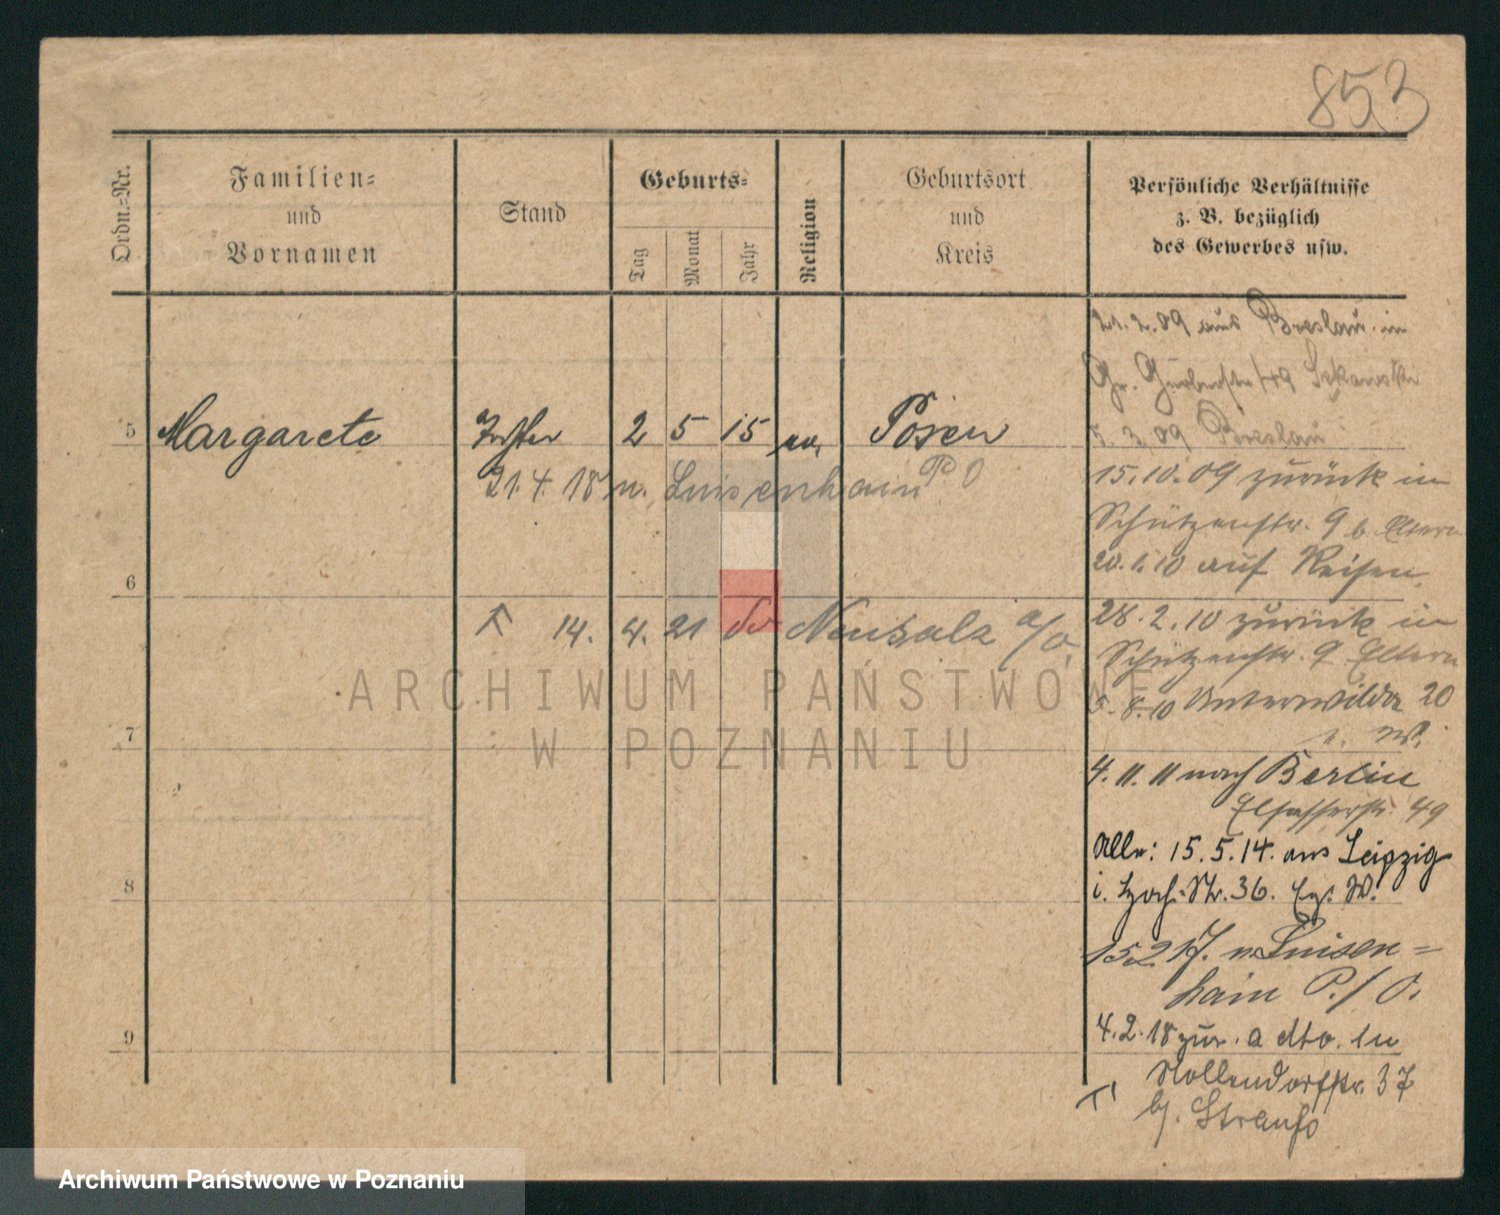 853
Ordn.-Nr.
Familien-
und
Vornamen
Stand
Geburts-
Tag
Monat
Jahr
Religion
Geburtsort
und
Kreis
Persönliche Verhältnisse
z. B. bezüglich
des Gewerbes usw.
5 Margarete Tochter 2 5 15 ev. Posen
21.4.18 n. Luisenhain P O
6
14. 4. 21 Neusalz a/O.
7
8
9
21.2.09 aus Breslau in
Gr. Gerberstr. 49
5.3.09 Breslau
15.10.09 zurück in
Schützenstr. 9 b. Eltern
20.1.10 auf Reisen
28.2.10 zurück in
Schützenstr. 9 Eltern
5.8.10 Unterwilda 20
W.
4.11.11 nach Berlin
Elsasserstr. 49
Alle: 15.5.14. aus Leipzig
i. Str. 36. W.
15 2 17. n. Luisen=
hain P./O.
4.2.18 zur. a dto. in
Nollendorfstr. 37
b. Strauß
ARCHIWUM PAŃSTWOWE
W POZNANIU
Archiwum Państwowe w Poznaniu